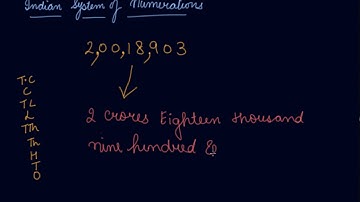 Indian System of Numerations
2,00,18,903
T.C
C
TL
L
TTh
Th
H
T
O
2 crores Eighteen thousand
nine hundred &